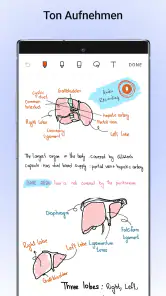 Ton Aufnehmen
T
DONE
Gallbladder
Cystic duct
Common bile duct
Audio Recording
hepatic artery
Portal vein
Right lobe
Coronary ligament
Left lobe
The largest organ in the body covered by Glisson's
capsule has dual blood supply : portal vein + hepatic artery
is not covered by the peritoneum
Diaphragm
Falciform ligament
Right lobe
Left lobe
Ligamentum
Gallbladder
Three lobes : Right, Left